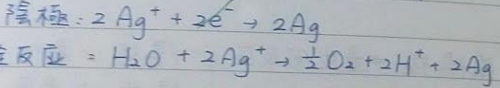 陰極: 2Ag⁺ + 2e⁻ → 2Ag
反应 = H₂O + 2Ag⁺ → ½O₂ + 2H⁺ + 2Ag